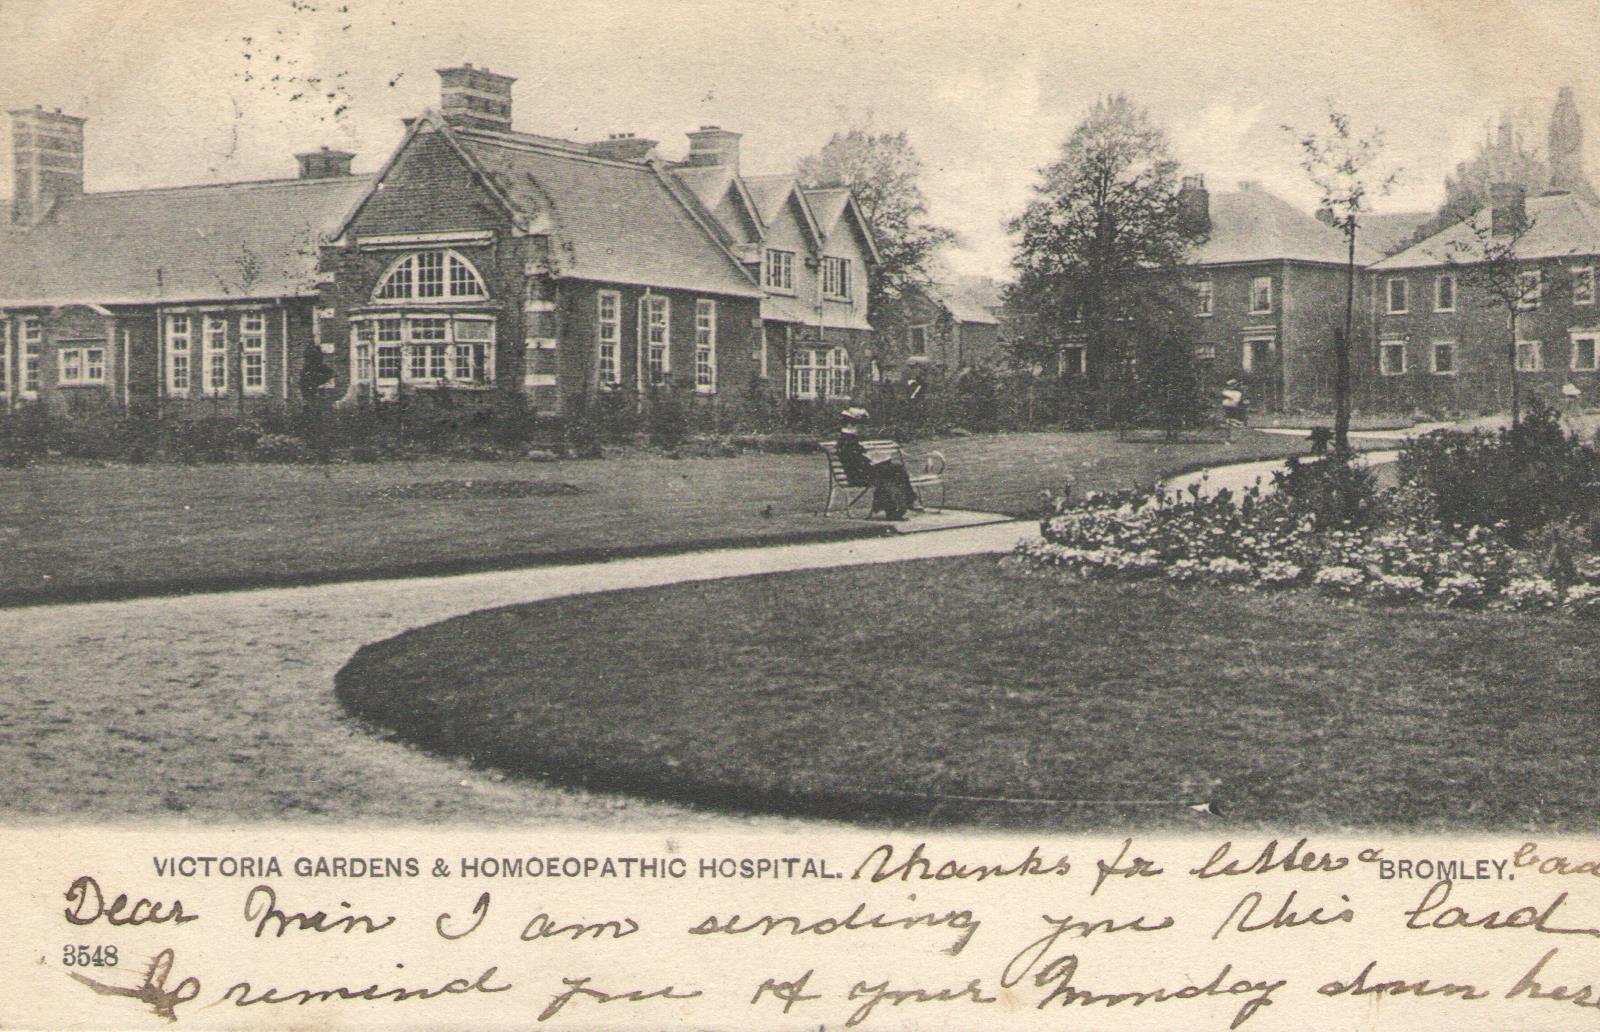 VICTORIA GARDENS & HOMOEOPATHIC HOSPITAL. Thanks for letter & BROMLEY.
Dear Min I am sending you this Card
3548
to remind you of your Monday down here